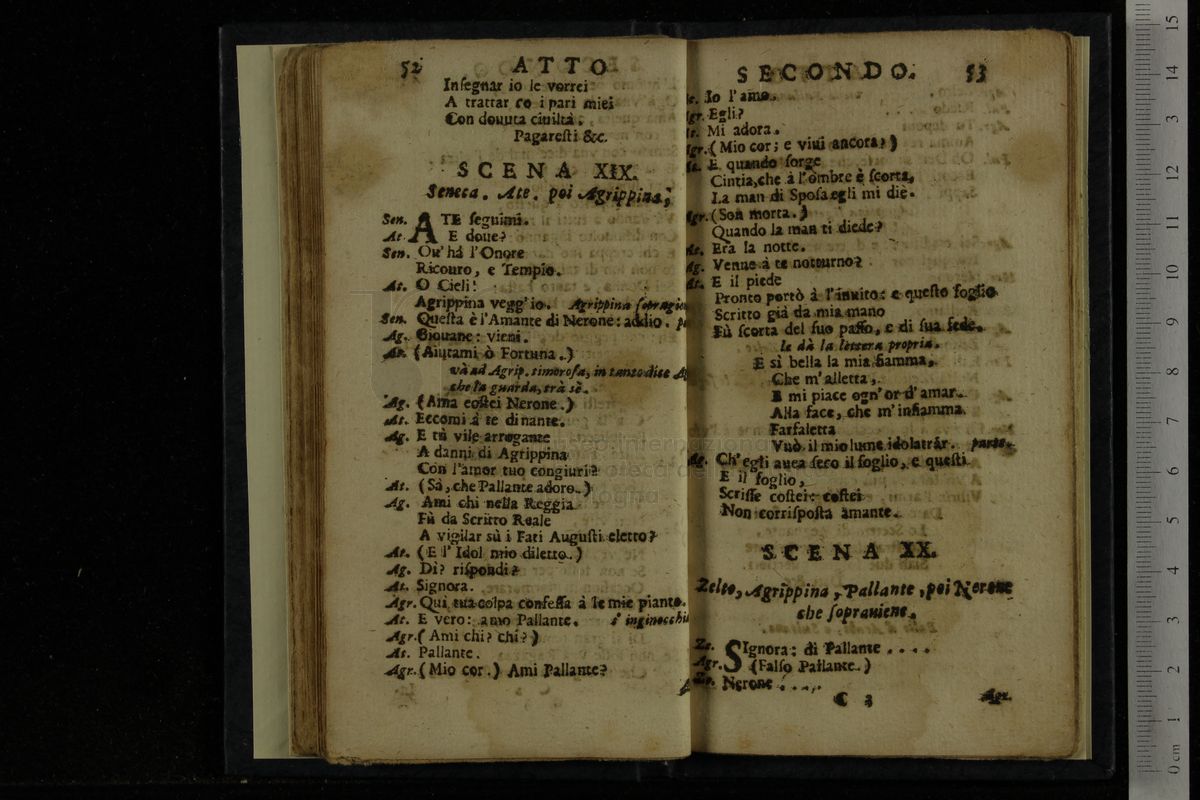 52 ATTO
Inſegnar io le vorrei
A trattar co i pari miei
Con douuta ciuiltà.
Pagareſti &c.
SCENA XIX.
Seneca. Ate. poi Agrippina;
Sen. ATE ſeguimi.
At. E doue?
Sen. Ou'hà l'Onore
Ricouro, e Tempio.
At. O Cieli!
Agrippina vegg'io. Agrippina ſopragiun
Sen. Queſta è l'Amante di Nerone: addio. p
Ag. Giouane: vieni.
At. (Aiutami ò Fortuna.)
và ad Agrip. timoroſa, in tanto dice A
che la guarda, trà sè.
Ag. (Ama coſtei Nerone.)
At. Eccomi à te dinante.
Ag. E tù vile arrogante
A danni di Agrippina
Con l'amor tuo congiuri?
At. (Sà, che Pallante adoro.)
Ag. Ami chi nella Reggia
Fù da Scritto Reale
A vigilar sù i Fati Auguſti eletto?
At. (E l'Idol mio diletto.)
Ag. Dì? riſpondi?
At. Signora.
Agr. Qui tua colpa confeſſa à le mie piante.
At. E vero: amo Pallante. s'inginocchia
Agr. (Ami chi? chi?)
At. Pallante.
Agr. (Mio cor.) Ami Pallante?
SECONDO. 53
At. Io l'amo.
Agr. Egli?
At. Mi adora.
Agr. (Mio cor; e viui ancora?)
At. E quando ſorge
Cintia, che à l'ombre è ſcorta,
La man di Spoſa egli mi diè.
Agr. (Son morta.)
Quando la man ti diede?
At. Era la notte.
Ag. Venne à te notturno?
At. E il piede
Pronto portò à l'inuito: e queſto foglio
Scritto già da mia mano
Fù ſcorta del ſuo paſſo, e di ſua fede.
le dà la lettera propria.
E sì bella la mia fiamma,
Che m'alletta,
E mi piace ogn'or d'amar
Alla face, che m'infiamma
Farfaletta
Vuò il mio lume idolatrar. parte.
Ag. Ch'egli auea ſeco il foglio, e queſti
E il foglio,
Scriſſe coſtei: coſtei
Non corriſpoſta amante.
SCENA XX.
Zelto, Agrippina, Pallante, poi Nerone
che ſopraviene.
Ze. SIgnora: di Pallante ....
Agr. (Falſo Pallante.)
Ze. Nerone ....
C 3 Agr.